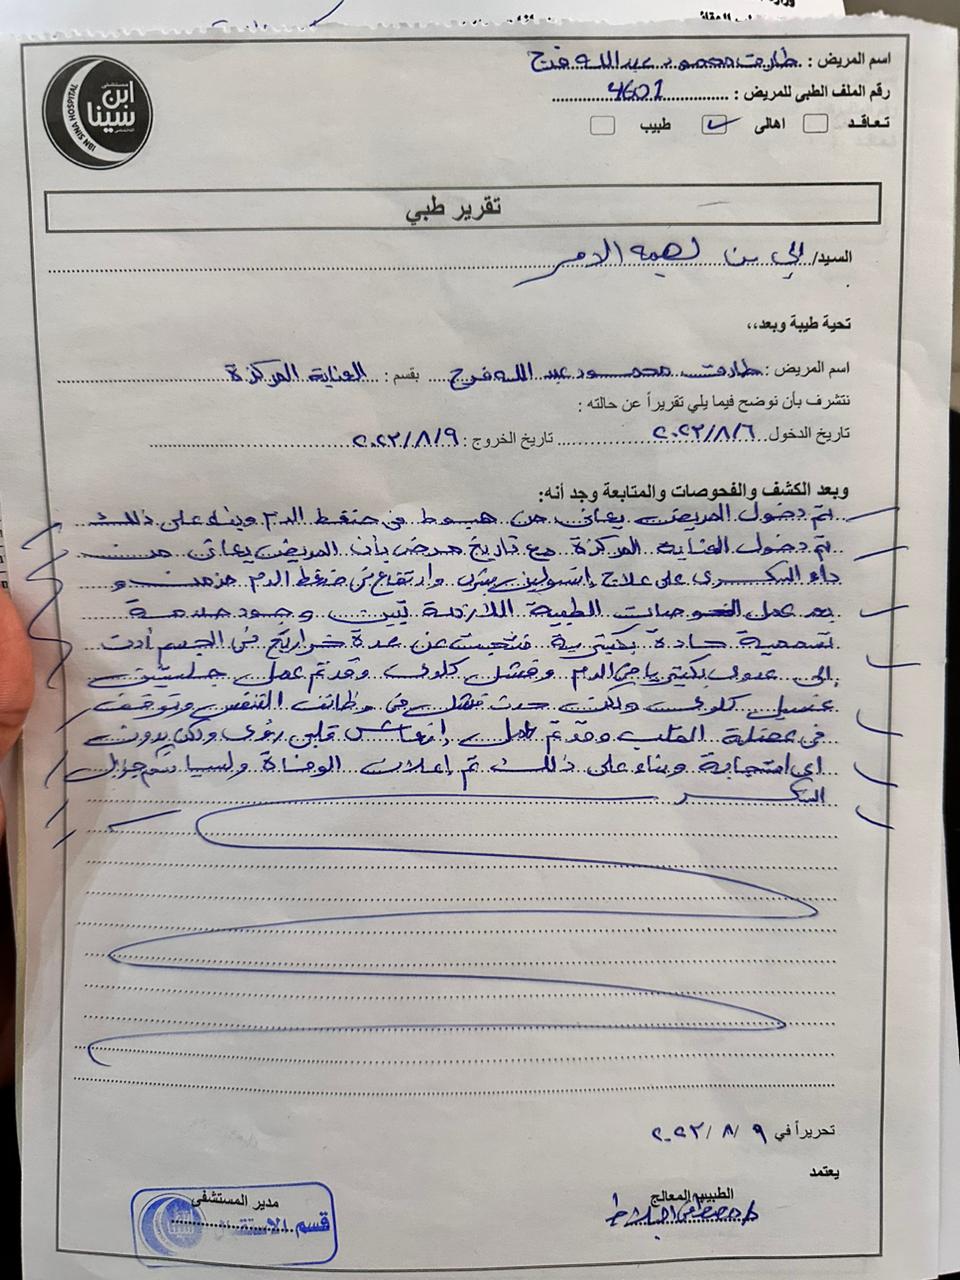 اسم المريض : طارق محمود عبد الله فرج
رقم الملف الطبى للمريض : 4601
تعاقد اهالى طبيب
مستشفى ابن سينا التخصصى
IBN SINA HOSPITAL
تقرير طبي
السيد/ إلي من يهمه الامر
تحية طيبة وبعد،،
اسم المريض : طارق محمود عبد الله فرج بقسم : العناية المركزة
نتشرف بأن نوضح فيما يلي تقريراً عن حالته :
تاريخ الدخول ٢٠٢٢/٨/٦ تاريخ الخروج : ٢٠٢٢/٨/٩
وبعد الكشف والفحوصات والمتابعة وجد أنه:
تم دخول المريض يعانى من هبوط فى ضغط الدم وبناء على ذلك
تم دخول العناية المركزة مع تاريخ مرضى بأن المريض يعانى من
داء السكرى على علاج إنسولين وارتفاع فى ضغط الدم مزمن و
بعد عمل الفحوصات الطبية اللازمة تبين وجود صدمة
تسممية حادة بكتيرية نتجت عن عدة خراريج فى الجسم أدت
إلى عدوى بكتيريا فى الدم وفشل كلوى وقد تم عمل جلستين
غسيل كلوى ولكن حدث فشل فى وظائف التنفس وتوقف
فى عضلة القلب وقد تم عمل إنعاش قلبى رئوى ولكن بدون
اى استجابة وبناء على ذلك تم إعلان الوفاة ولسيادتكم جزيل
الشكر
تحريراً في ٢٠٢٢/٨/٩
يعتمد
الطبيب المعالج مدير المستشفى
د/مصطفى
قسم الاستقبال